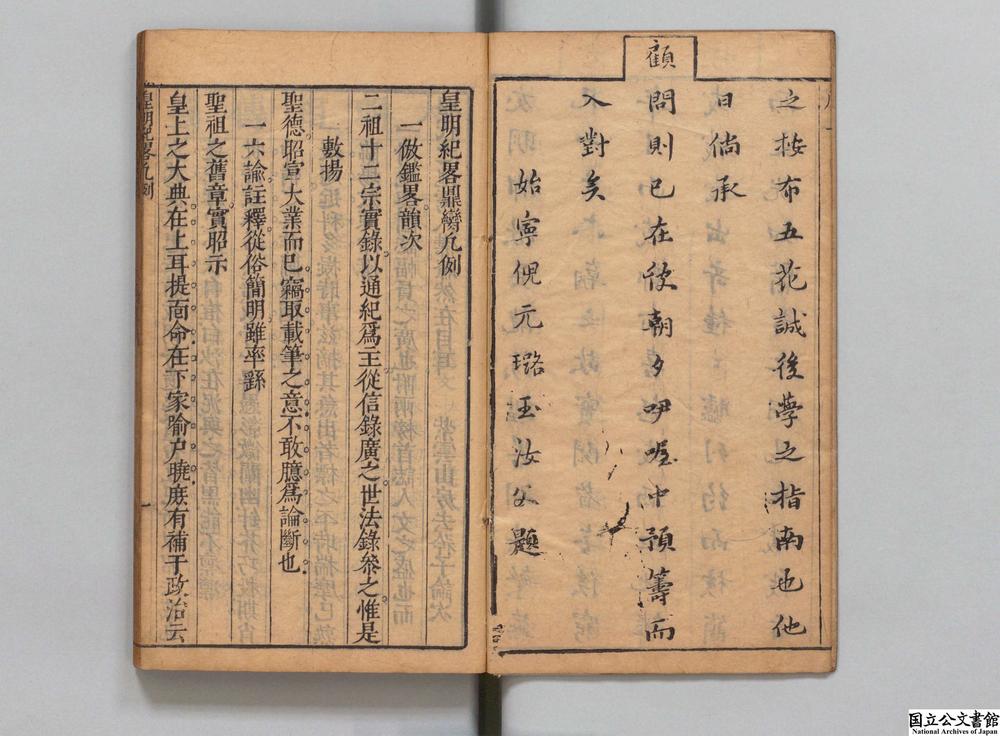 之按布五花誠後學之指南也他
日倘承
顧
問則已在彼朝夕吚喔中預籌而
入對矣
始寧倪元璐玉汝父題
皇明紀畧鼎臠凡例
一倣鑑畧韻次
二祖十二宗實錄以通紀爲主從信錄廣之世法錄叅之惟是
敷揚
聖德昭宣大業而已竊取載筆之意不敢臆爲論斷也
一六諭註釋從俗簡明雖率繇
聖祖之舊章實昭示
皇上之大典在上耳提面命在下家喻戸曉庻有補于政治云
皇明紀畧凡例
一
国立公文書館
National Archives of Japan